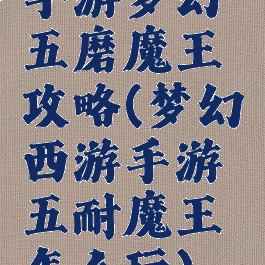 手游梦幻
五磨魔王
攻略(梦幻
西游手游
五耐魔王
怎么玩)